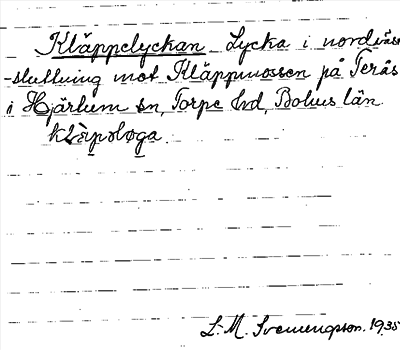 Kläppelyckan Lycka i nordväst
-sluttning mot Kläppmossen på Terås
i Hjärtum sn, Torpe hd, Bohus län.
L. M. Svenungsson. 1935